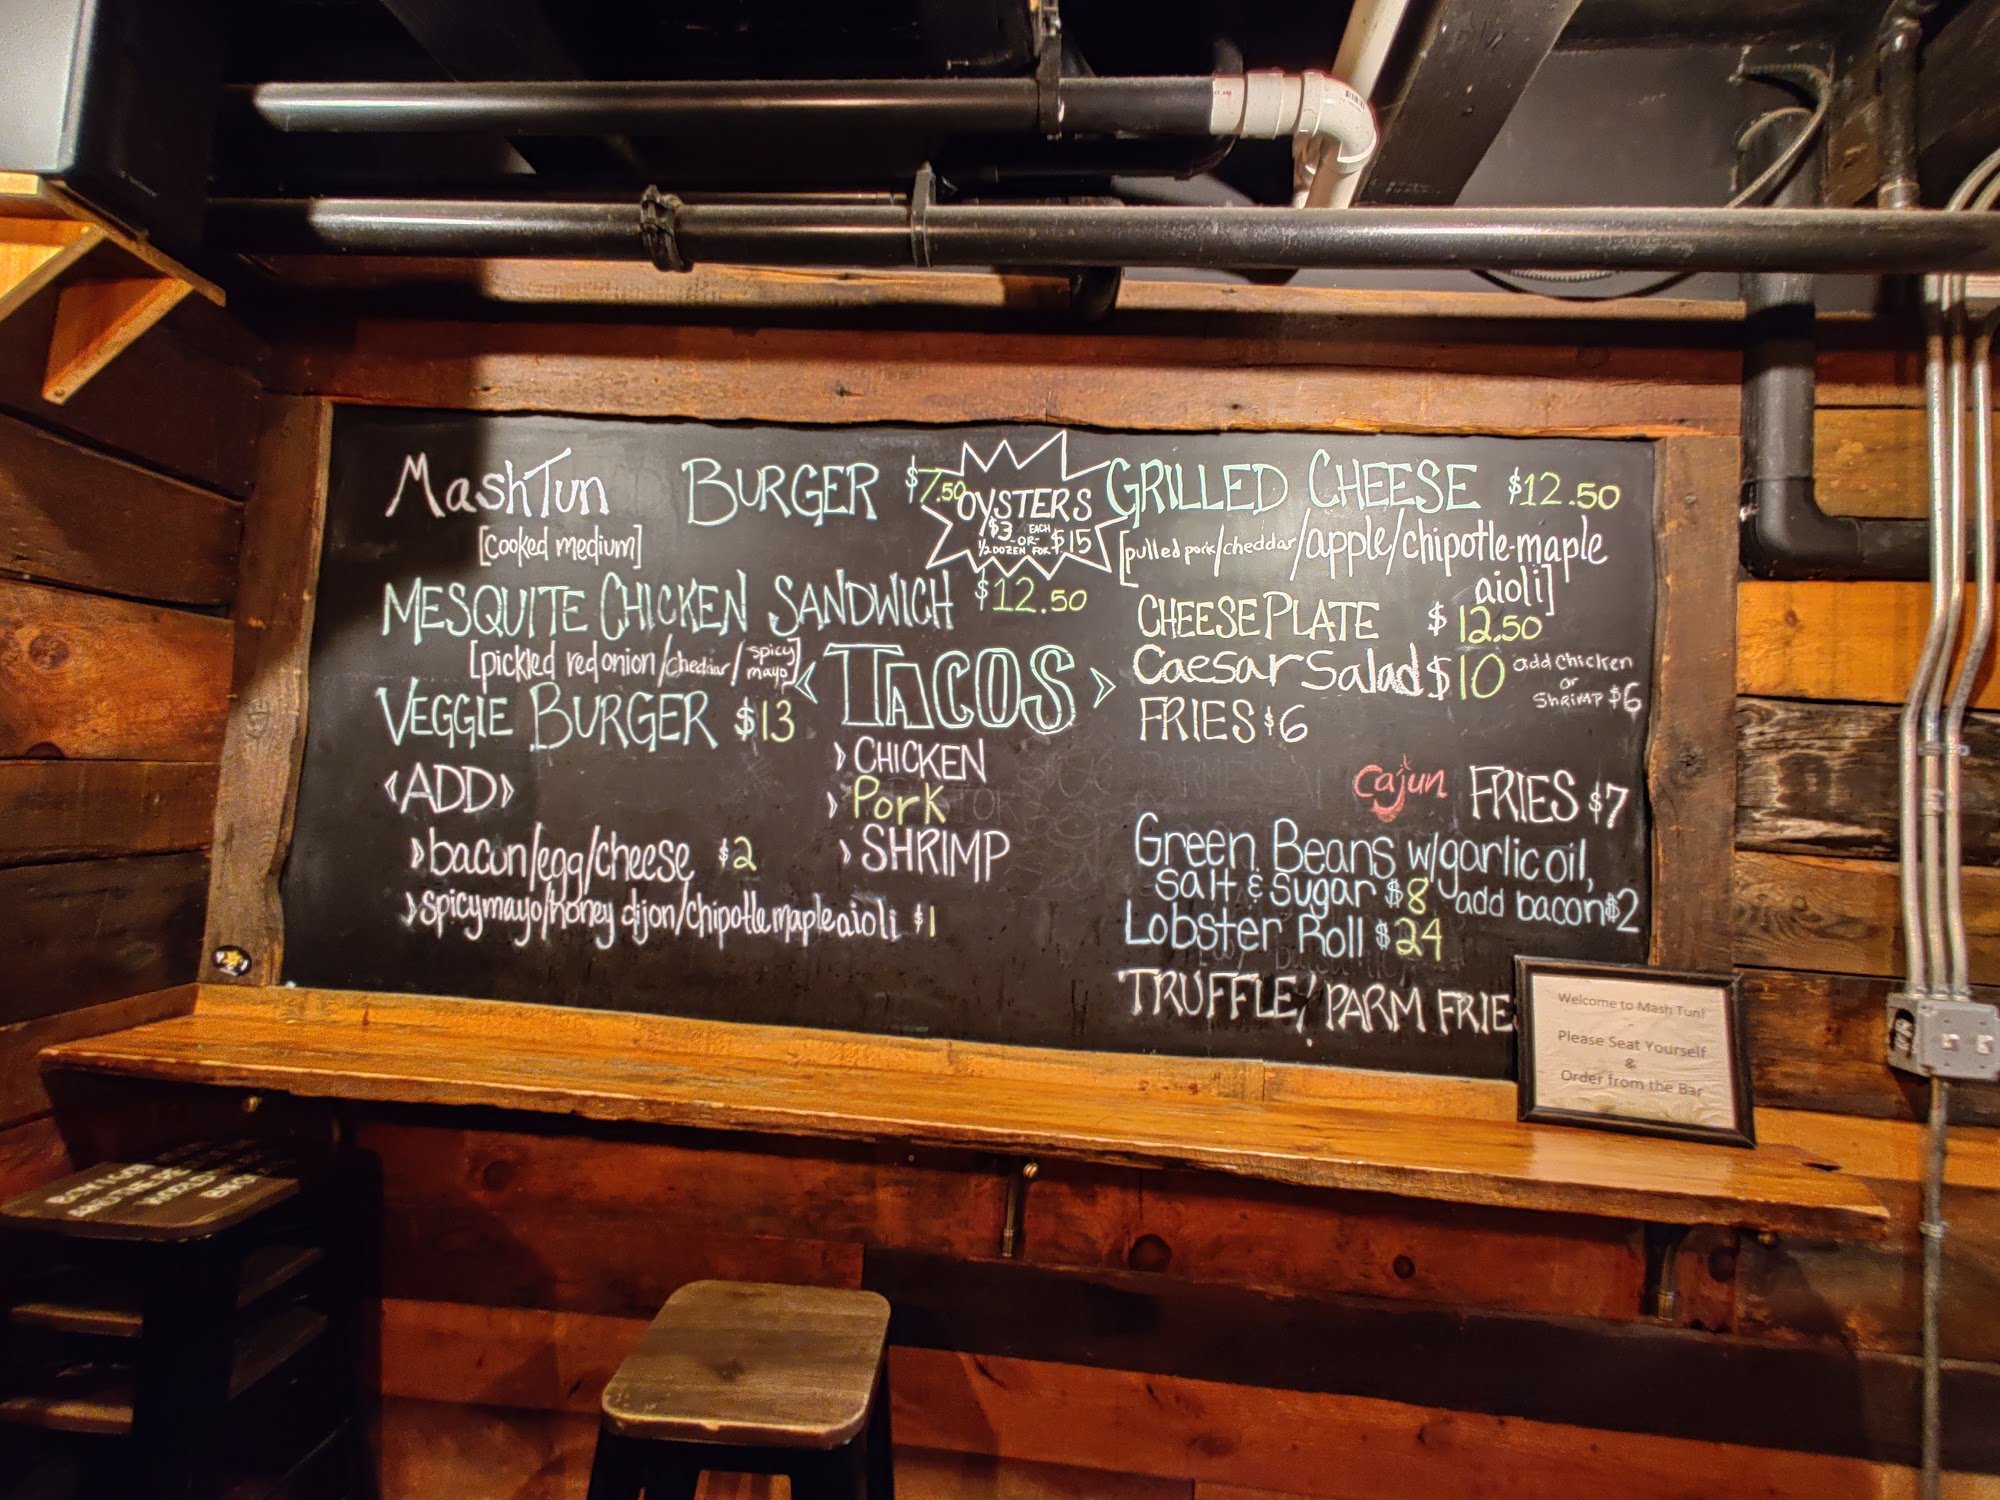 MashTun BURGER $7.50
[cooked medium]
MESQUITE CHICKEN SANDWICH $12.50
[pickled red onion/cheddar/spicy mayo]
VEGGIE BURGER $13
<ADD>
>bacon/egg/cheese $2
>spicymayo/honey dijon/chipotle maple aioli $1
OYSTERS
$3 EACH
-OR-
1/2 DOZEN FOR $15
<TACOS>
> CHICKEN
> Pork
> SHRIMP
GRILLED CHEESE $12.50
[pulled pork/cheddar/apple/chipotle-maple
aioli]
CHEESE PLATE $12.50
Caesar Salad $10 add chicken
or
Shrimp $6
FRIES $6
Cajun FRIES $7
Green Beans w/garlic oil,
salt & sugar $8 add bacon $2
Lobster Roll $24
TRUFFLE/PARM FRIE
Welcome to Mash Tun!
Please Seat Yourself
&
Order from the Bar